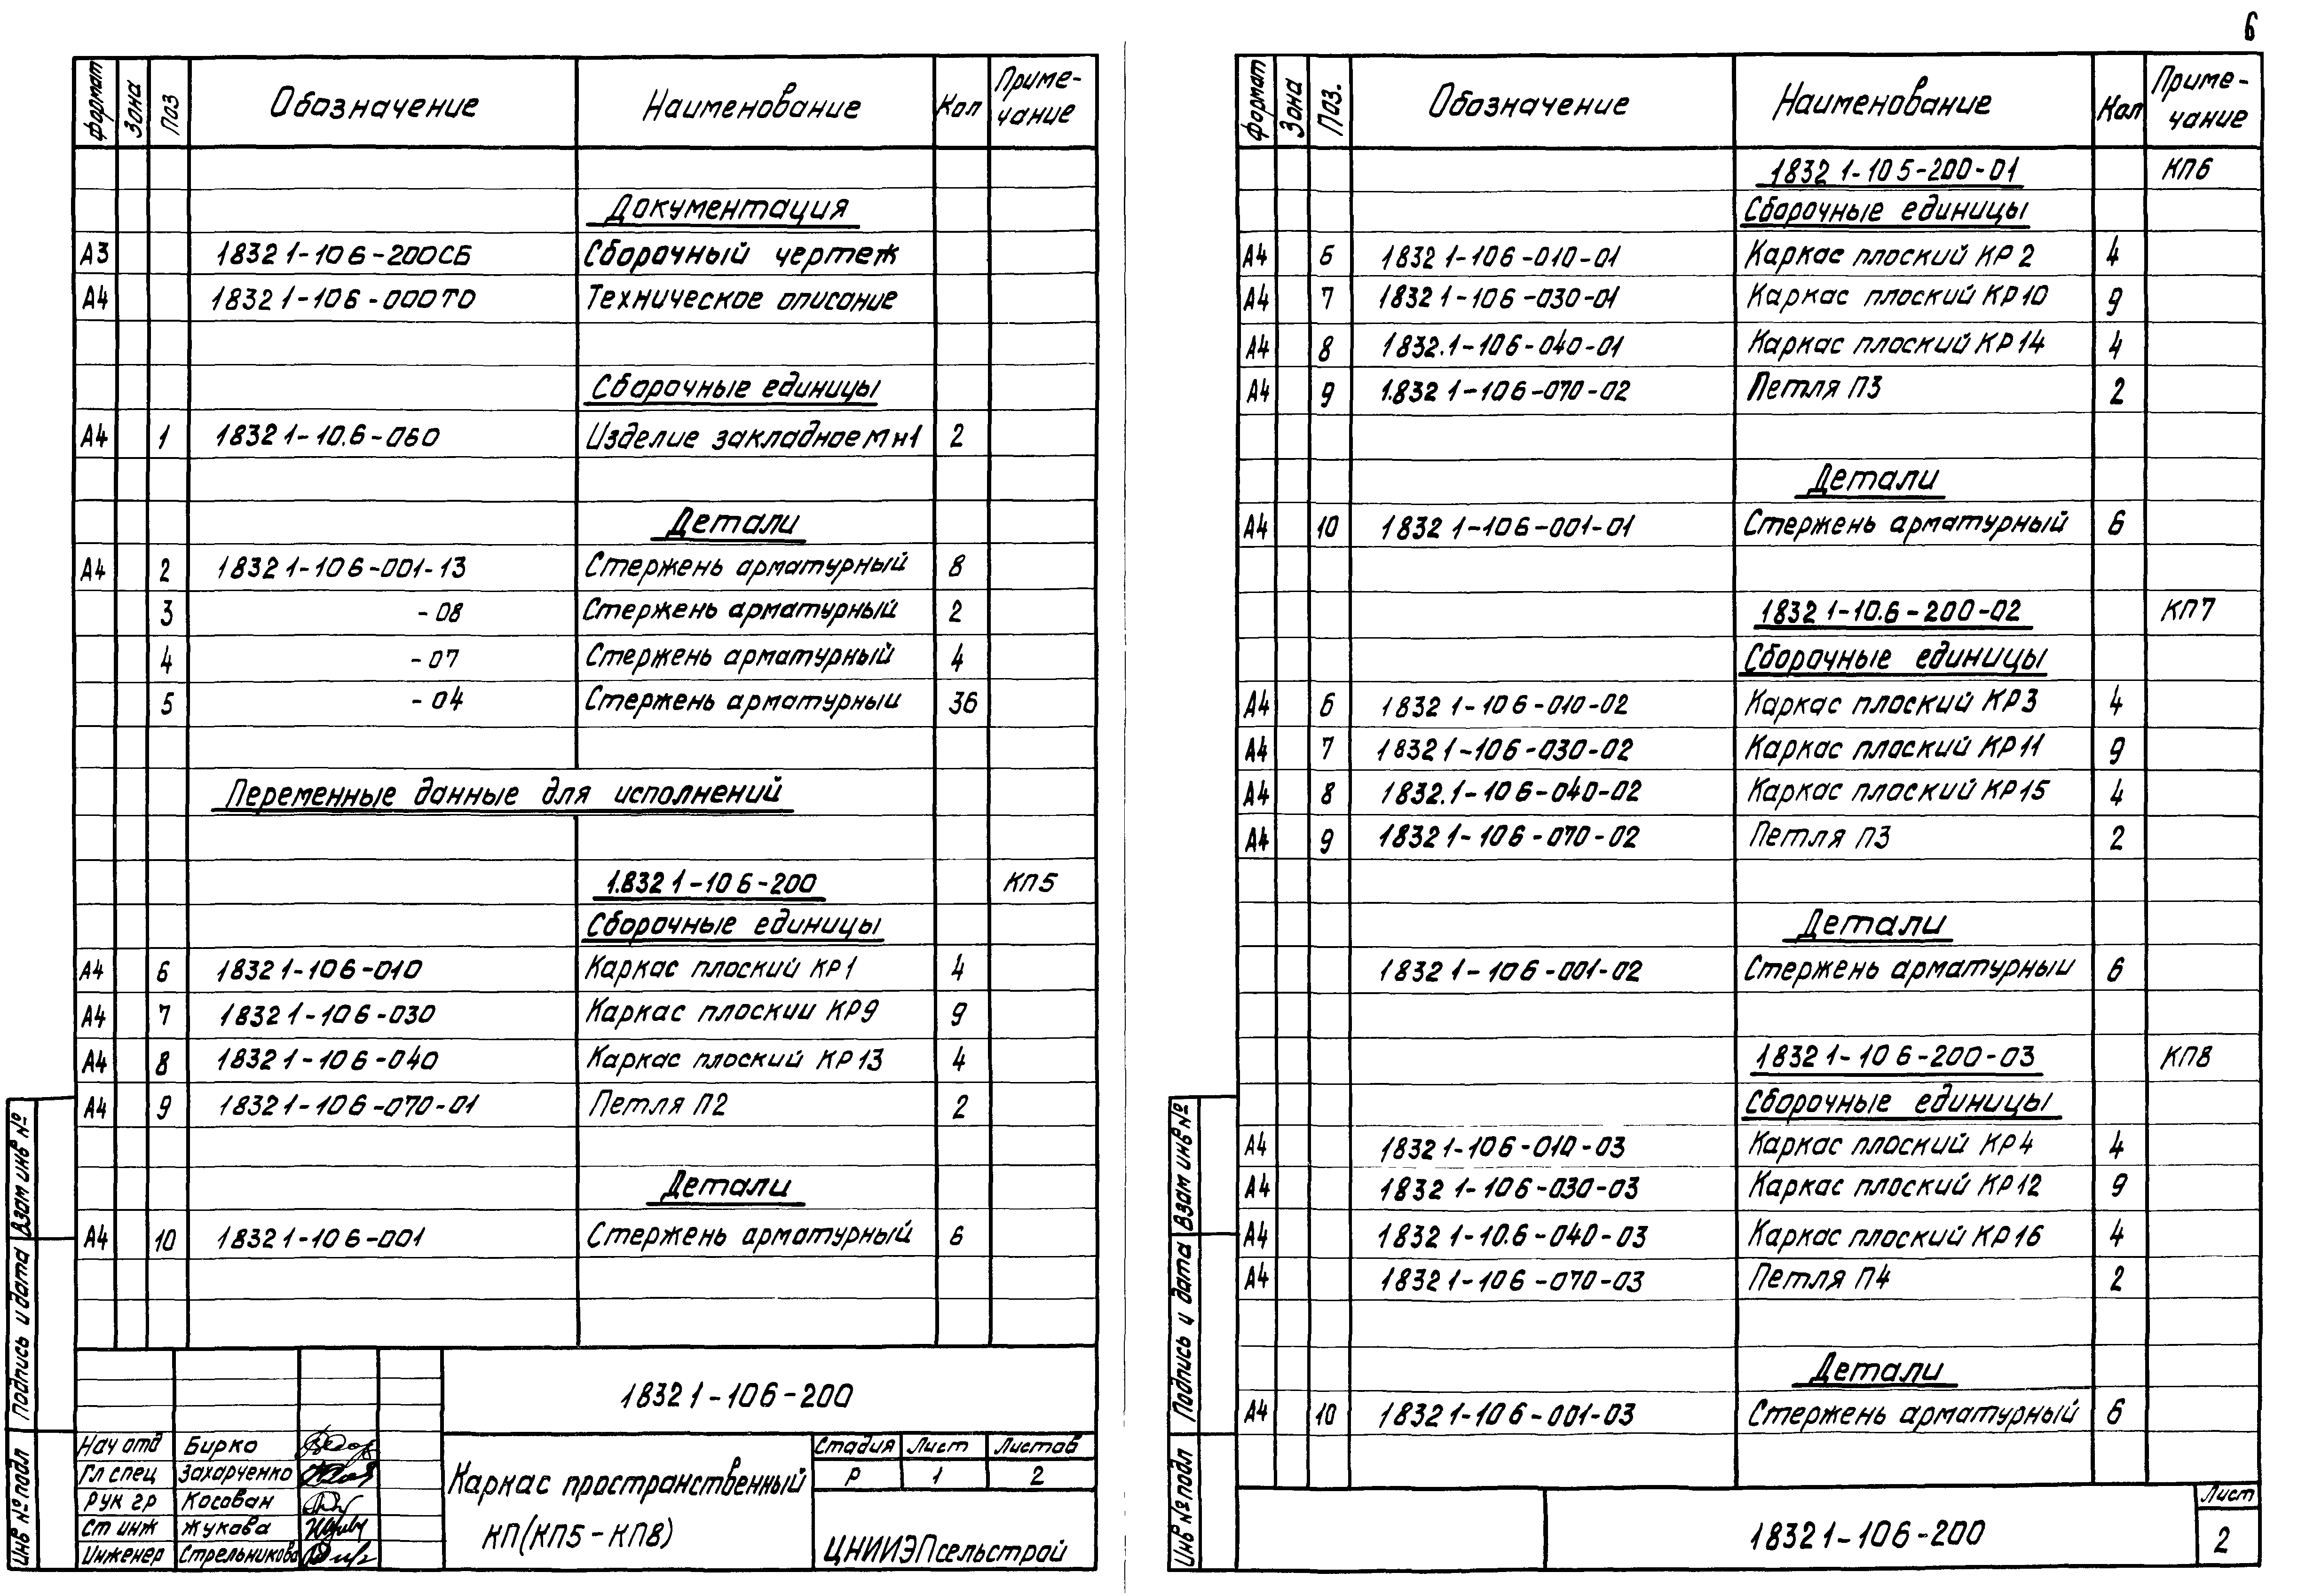 6
Формат Зона Поз Обозначение Наименование Кол Приме-
чание
Документация
А3 1832 1-10 6-200СБ Сборочный чертеж
А4 1832 1-10 6-000ТО Техническое описание
Сборочные единицы
А4 1 1832 1-10.6-060 Изделие закладное Мн1 2
Детали
А4 2 1832 1-10 6-001-13 Стержень арматурный 8
3 -08 Стержень арматурный 2
4 -07 Стержень арматурный 4
5 -04 Стержень арматурный 36
Переменные данные для исполнений
1.832 1-10 6-200 КП5
Сборочные единицы
А4 6 1832 1-10 6-010 Каркас плоский КР1 4
А4 7 1832 1-10 6-030 Каркас плоский КР9 9
А4 8 1832 1-10 6-040 Каркас плоский КР13 4
А4 9 1832 1-10 6-070-01 Петля П2 2
Детали
А4 10 1832 1-10 6-001 Стержень арматурный 6
1832 1-10 6-200
Нач отд Бирко
Гл спец Захарченко
Рук гр Косован
Ст инж Жукова
Инженер Стрельникова
Каркас пространственный
КП(КП5-КП8)
Стадия Лист Листов
Р 1 2
ЦНИИЭПсельстрой
Взам инв №
Подпись и дата
Инв № подл
Формат Зона Поз. Обозначение Наименование Кол Приме-
чание
1832 1-10 5-200-01 КП6
Сборочные единицы
А4 6 1832 1-10 6-010-01 Каркас плоский КР2 4
А4 7 1832 1-10 6-030-01 Каркас плоский КР10 9
А4 8 1832.1-10 6-040-01 Каркас плоский КР14 4
А4 9 1.832 1-10 6-070-02 Петля П3 2
Детали
А4 10 1832 1-10 6-001-01 Стержень арматурный 6
1832 1-10.6-200-02 КП7
Сборочные единицы
А4 6 1832 1-10 6-010-02 Каркас плоский КР3 4
А4 7 1832 1-10 6-030-02 Каркас плоский КР11 9
А4 8 1832.1-10 6-040-02 Каркас плоский КР15 4
А4 9 1832 1-10 6-070-02 Петля П3 2
Детали
1832 1-10 6-001-02 Стержень арматурный 6
1832 1-10 6-200-03 КП8
Сборочные единицы
А4 1832 1-10 6-010-03 Каркас плоский КР4 4
А4 1832 1-10 6-030-03 Каркас плоский КР12 9
А4 1832 1-10.6-040-03 Каркас плоский КР16 4
А4 1832 1-10 6-070-03 Петля П4 2
Детали
А4 10 1832 1-10 6-001-03 Стержень арматурный 6
1832 1-10 6-200
Лист
2
Взам инв №
Подпись и дата
Инв № подл